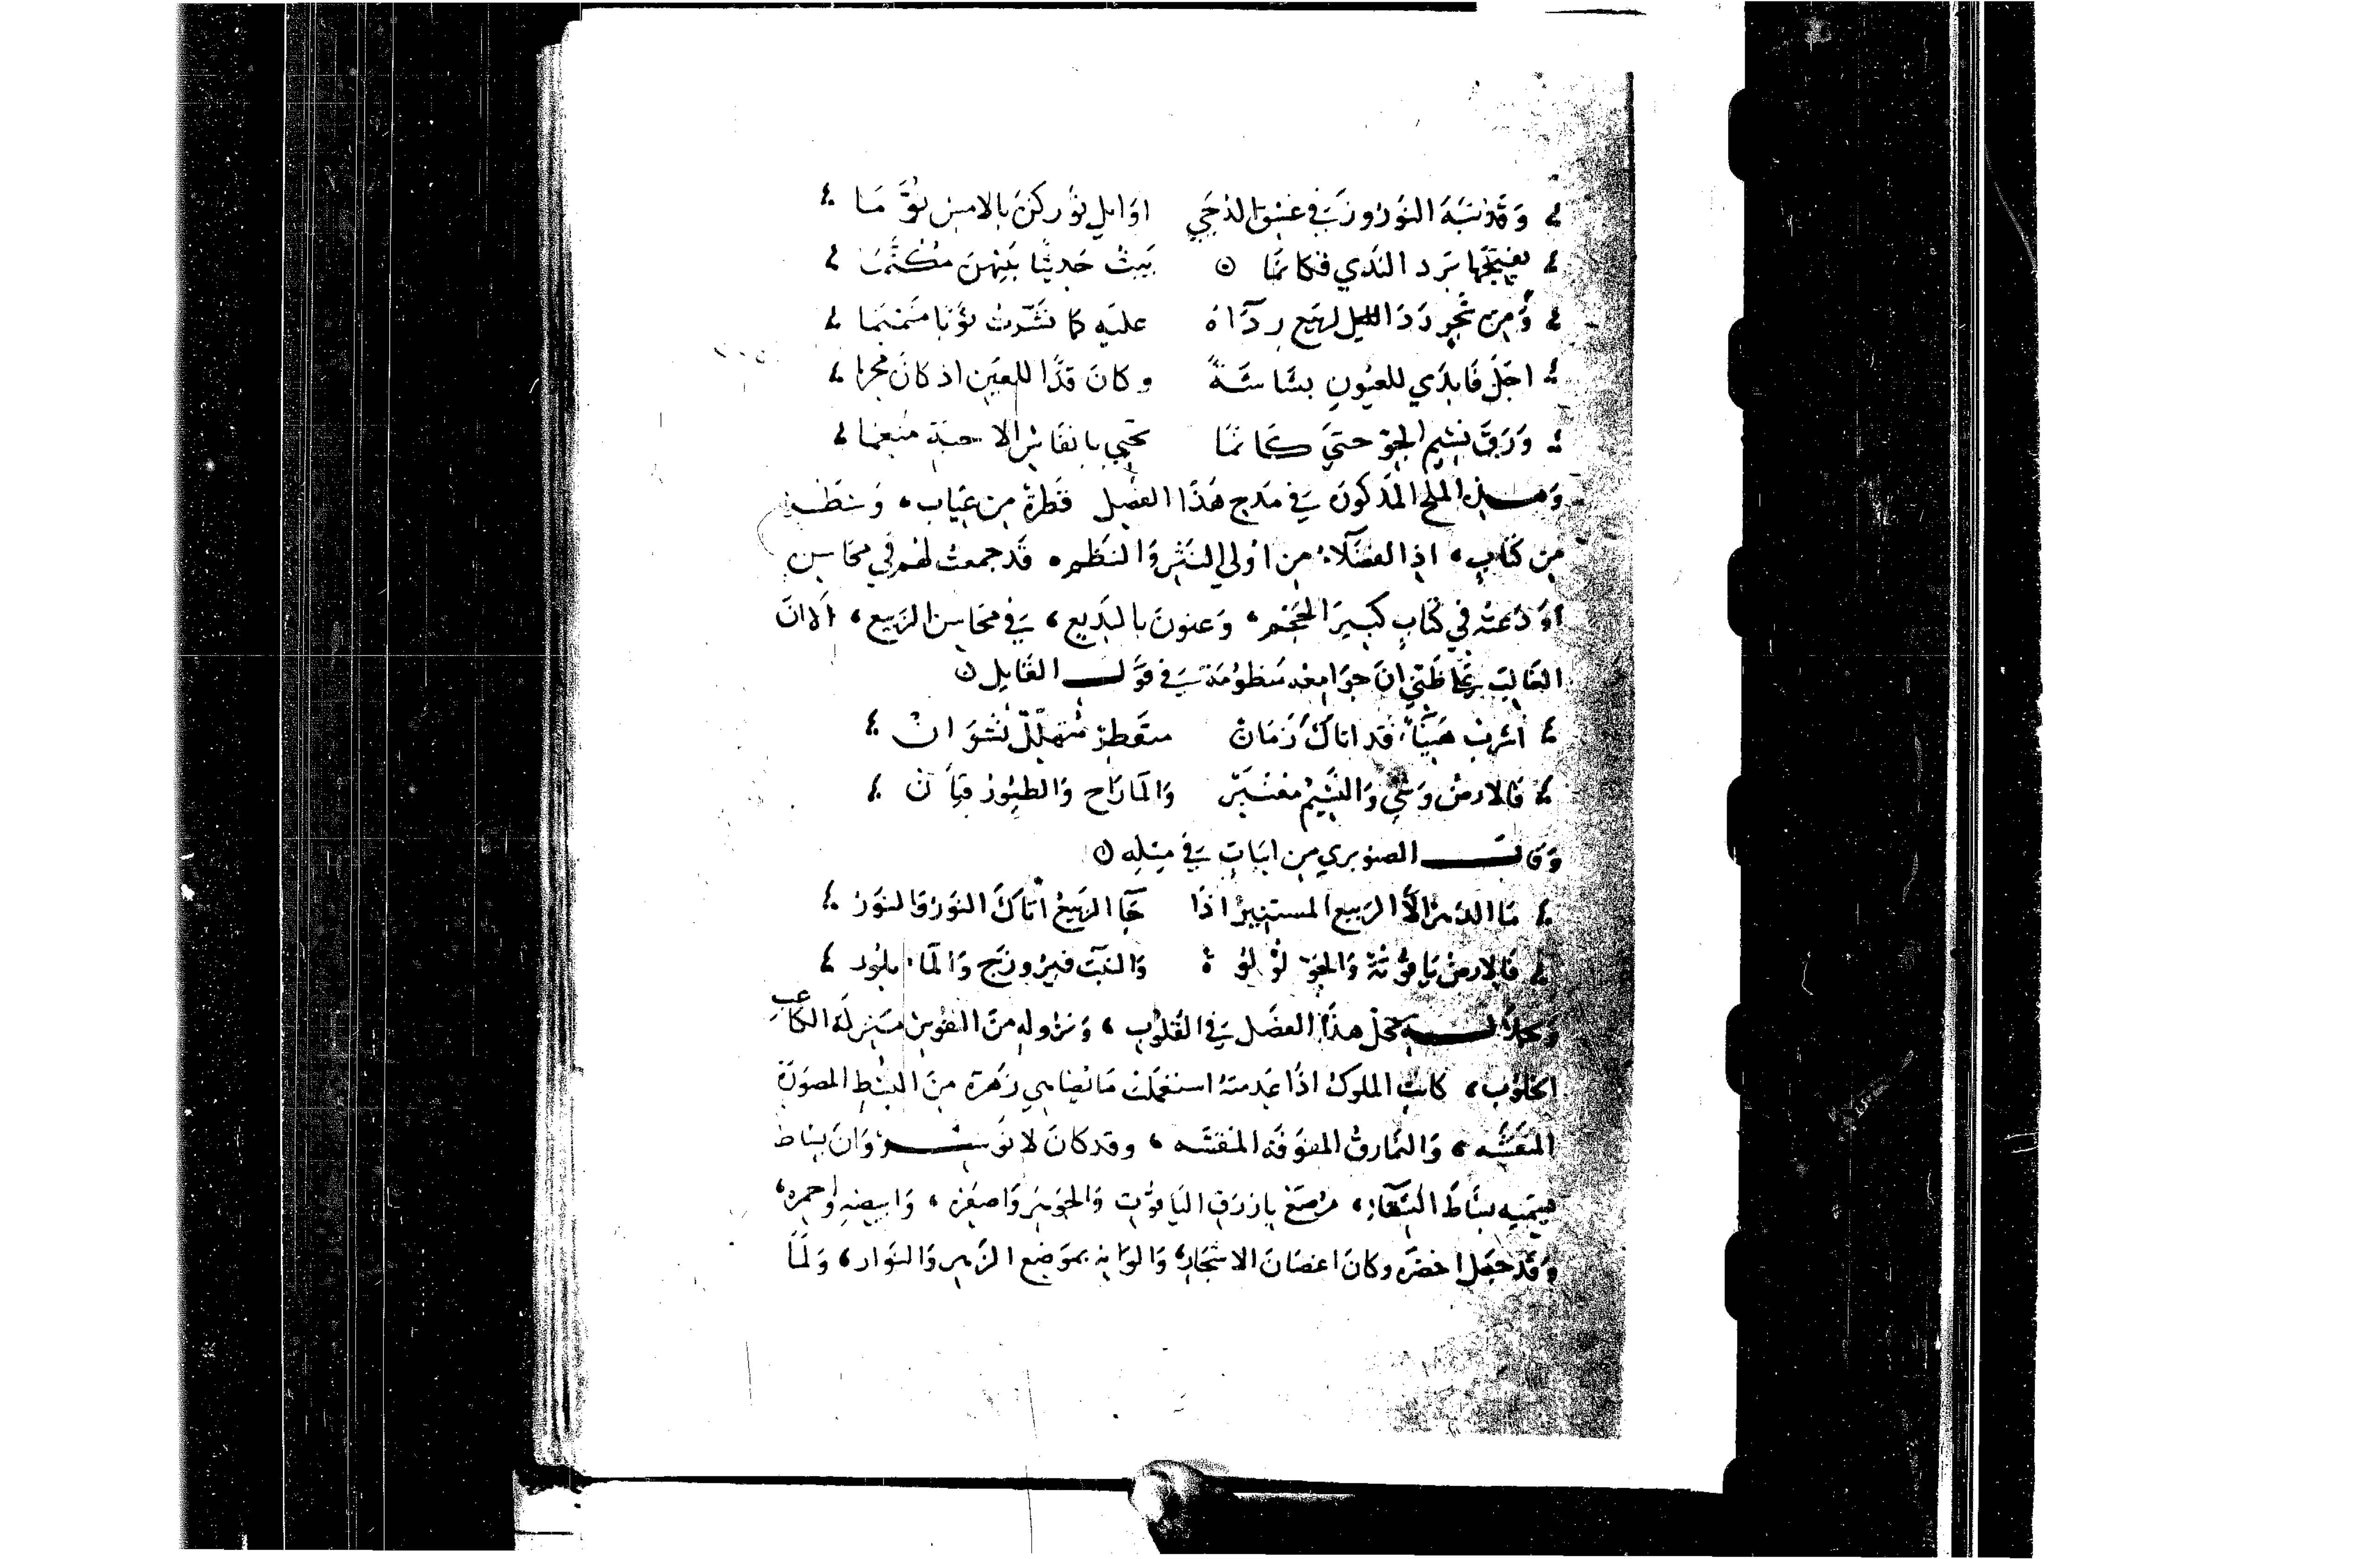 وَقَدْ نَبَّهَ النَوْرُوز في غسَق الدُجَي اوَايل نَوْر كنَّ بالامسِ نُوَّمَا
يُفَتِّحُهَا بَرد النَدَي فَكَانمَا يَبثُ حَديثًا بَيْنَهُنَ مُكَتَّمَا
وَمِن شَجَرٍ رَدَ الربيع ردَاهُ عليَهِ كمَا نَشَّرتَ ثَوْبًا مُنَمْنَمَا
احَلَّ فَابدَي للعيُونِ بشَاشَةً وكانَ قذًا للعَين اذ كانَ محرما
وَرَقَّ نسَيم الجوّ حتيَ كَانمَا تَجي بانفَاسِ الاحبَةِ مُنعمَا
وَهــذه الملح المذكورَة في مَدح هَذا الفصل قَطرة من عبَاب، وَسَطْر
من كتَاب، اذ الفضَلاء من اولي النَثرِ وَالنَظم، قَد جمعتُ لهُم في محَاسن
اوْدَعته في كتَابٍ كبير الحَجْم، وَعنونَ بالبَديع، في محَاسن الربيع، الا انَ
الغَالبَ علَى ظَني انَ جوَامعَه منظومَة في قوَل القَايل
اشرب هَنيًا قد اتاكَ زَمَانُ متعَطرٌ مُتهلّلٌ نَشوَانُ
فَالارضُ وَشيٌ وَالنَسيمُ معَنبَرٌ وَالمَا رَاح وَالطيُورُ قيَانُ
وَقَالــ الصنوبري من ابيَاتٍ في مثله
مَا الدَهرُ الاَّ الربيع المستنيرُ اذَا جَا الربيعُ اتَاكَ النَوْرُ وَالنوُرُ
فَالارضُ يَاقُوتَةٌ وَالجَوّ لؤلؤةٌ وَالنبَت فيرُوزَج وَالمَاء بلورُ
وَلجلاَلــة محَل هذَا الفصَل في القُلوُب، وَنزوله منَ النفوُس مَنزلَة الكاعب
الخلوُب، كانت الملوكُ اذَا عَدمتهُ استعمَلتْ مَا يُضَاهي زَهرَة منَ البسُط المصَوَرَة
المنَقَشَّه، وَالنمَارقُ المفوَفَة المنقشَه، وقد كانَ لانوُ شــروَانَ بسَاط
يسَميه بسَاطَ الشتَاء، مُرصَّع بازرَق اليَاقوُت وَالجوهَر وَاصفره، وَابيضه واحمره،
وَقَد جَعَل اخضَره وكانَ اغصَانَ الاشجَار، وَالوَانه بموَضع الزَهر وَالنوَار، وَلَمَّا